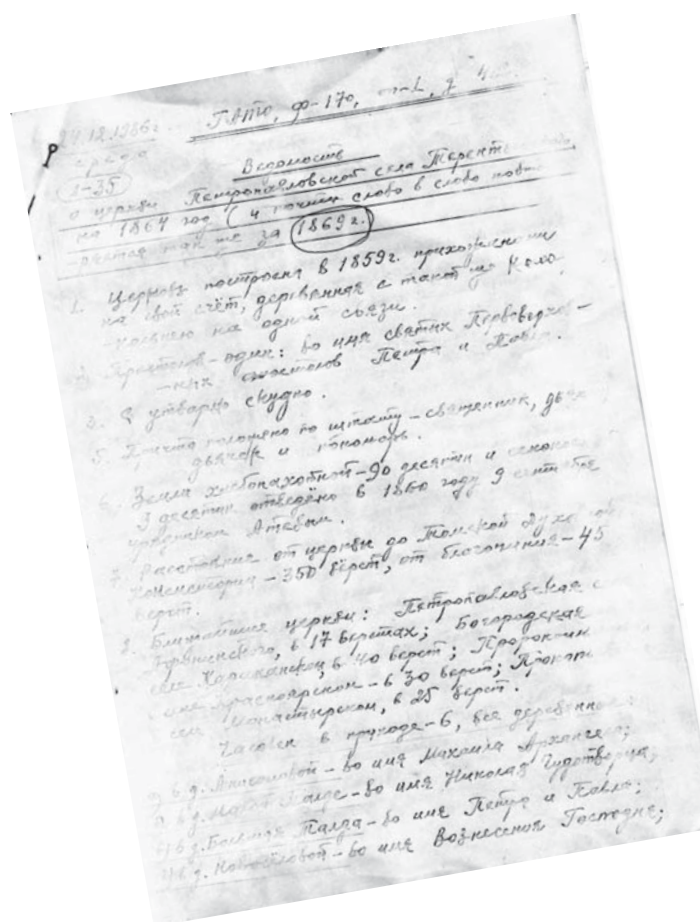 ГАТО, ф-170, оп-2, д
24.12.1986г.
среда
1-35
Ведомость
о церкви Петропавловской села
на 1864 год (и почти слово в слово
так же за 1869г.
1. Церковь построена в 1859г. прихожанами
на свой счёт, деревянная с такой же коло
-кольнею на одной связи.
Престолов - один: во имя святых Первоверхов-
-ных апостолов Петра и Павла.
утварью скудно.
5. Причта положено по штату - священник,
дьячок и пономарь.
6. Земли хлебопахотной - 90 десятин и
3 десятин отведено в 1860 году 9 сентября
7. Расстояние от церкви до Томской духовной
консистории - 350 вёрст, от благочиния - 45
вёрст.
8. Ближайшие церкви: Петропавловская
в 17 верстах; Богородская
в 40 верст; Пророк
Красноярском - в 30 верст;
Монастырском, в 25 верст.
Часовен в приходе - 6, все деревянные:
в д. - во имя Михаила Архангела;
в д. Малой Талде - во имя Николая Чудотворца;
в д. Большая Талда - во имя Петра и Павла;
в д. Новосёловой - во имя Вознесения Господня;